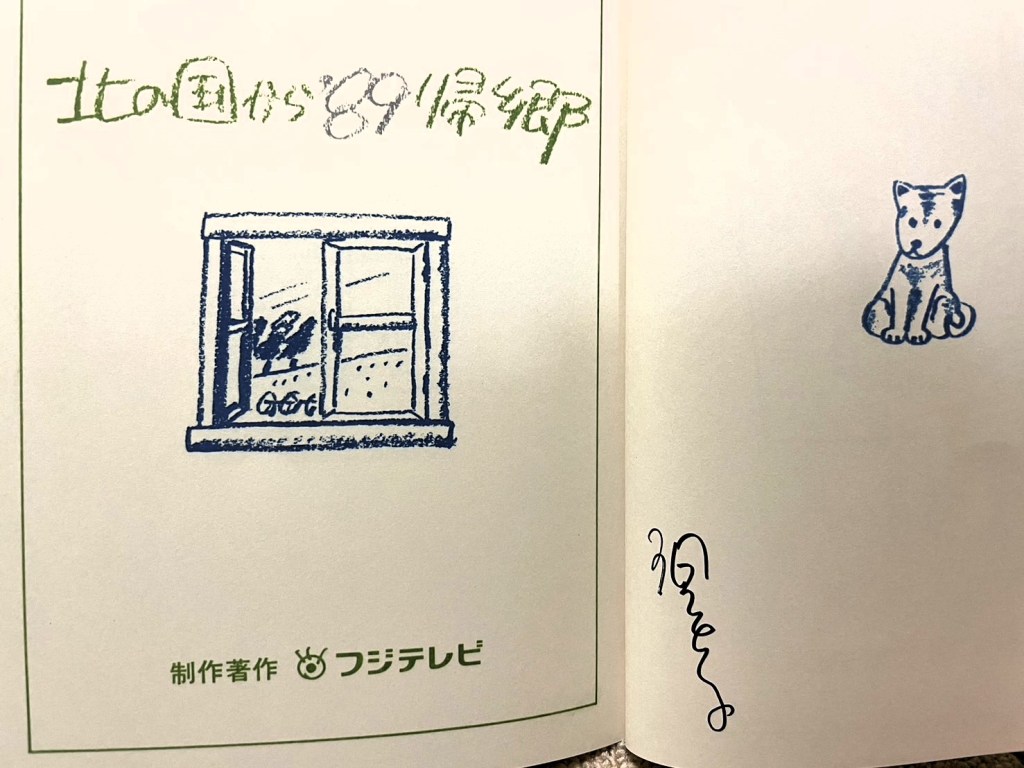 北の国から'89帰郷
制作著作 フジテレビ